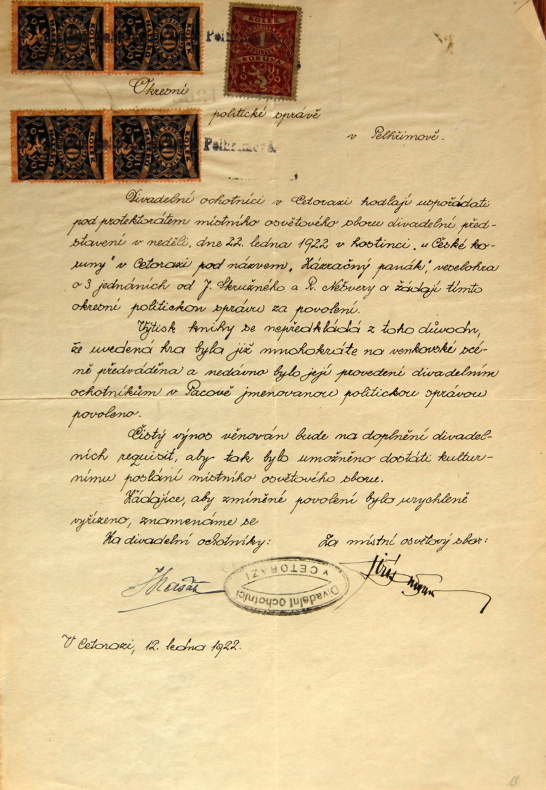 Okresní
politické správě
v Pelhřimově.
Divadelní ochotníci v Cetorazi hodlají uspořádati
pod protektorátem místního osvětového sboru divadelní před-
stavení v neděli, dne 22. ledna 1922 v hostinci „u České ko-
runy" v Cetorazi pod názvem „Zázračný panák", veselohra
o 3 jednáních od J. Skružného a R. Nešvery a žádají tímto
okresní politickou správu za povolení.
Výtisk knihy se nepředkládá z toho důvodu,
že uvedená hra byla již mnohokráte na venkovské scé-
ně předváděna a nedávno bylo její provedení divadelním
ochotníkům v Pacově jmenovanou politickou správou
povoleno.
Čistý výnos věnován bude na doplnění divadel-
ních requisit, aby tak bylo umožněno dostáti kultur-
nímu poslání místního osvětového sboru.
Žádajíce, aby zmíněné povolení bylo urychleně
vyřízeno, znamenáme se
Za divadelní ochotníky:
Za místní osvětový sbor:
Divadelní Ochotníci
V CETORAZI
V Cetorazi, 12. ledna 1922.